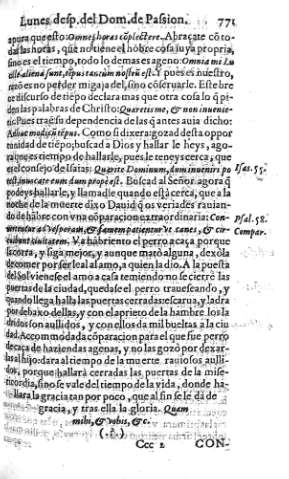 Lunes desp. del Dom. de Passion. 771
apura que esto: Omnes horas complectere. Abraçate cõ to-
das las horas, que no tiene el hõbre cosa suya propria,
sino es el tiempo, todo lo demas es ageno: Omnia mi Lu
aliena sunt, tempus tantum nostrũ est. Y pues es nuestro,
razõ es no perder migaja del, sino cõseruarle. Este bre
ue discurso de tiẽpo declara mas que otra cosa lo q̃ pi-
den las palabras de Christo: Quaretis me, & non inuenie-
tis: Pues trae su dependencia de las q̃ antes auia dicho:
Adhuc modicũ tẽpus. Como si dixera: gozad desta oppor
tunidad de tiẽpo; buscad a Dios y hallar le heys, ago-
ra que es tiempo de hallarle, pues le teneys cerca, que
es el consejo de Isaias: Quærite Dominum, dum inueniri po Isai. 55.
test, inuocate eum dum prope est. Buscad al Señor agora q̃
podeys hallarle, y llamadle quando està cerca, que a la
noche de la muerte dixo Dauid q̃ os veriades rauian-
do de hãbre con vna cõparacion extraordinaria: Con- Psal. 58.
uertentur ad vesperam, & famem patientur vt canes, & cir- Compar.
cuibunt ciuitatem. Va hãbriento el perro a caça porque
la corra, y siga mejor, y aunque mate alguna, dexòla
de comer por ser leal al amo, a quien la dio. A la puesta
del Sol viense el amo a casa temiendo no se cierrẽ las
puertas de la ciudad, quedase el perro traueseando, y
quando llega halla las puertas cerradas: escarua, y ladra
por debaxo dellas, y con el aprieto de la hambre los la
dridos son aullidos, y con ellos da mil bueltas a la ciu
dad. Accommodada cõparacion para el que fue perro
de caça de haziendas agenas, y no las gozò por dexar-
las al hijo: dara al tiempo de la muerte rauiosos aulli-
dos, porque hallarà cerradas las puertas de la mise-
ricordia, sino se vale del tiempo de la vida, donde ha-
llara la gracia tan por poco, que al fin se le dà de
gracia, y tras ella la gloria. Quam
mihi, & vobis, &c.
(.?.)
Ccc 2 CON-